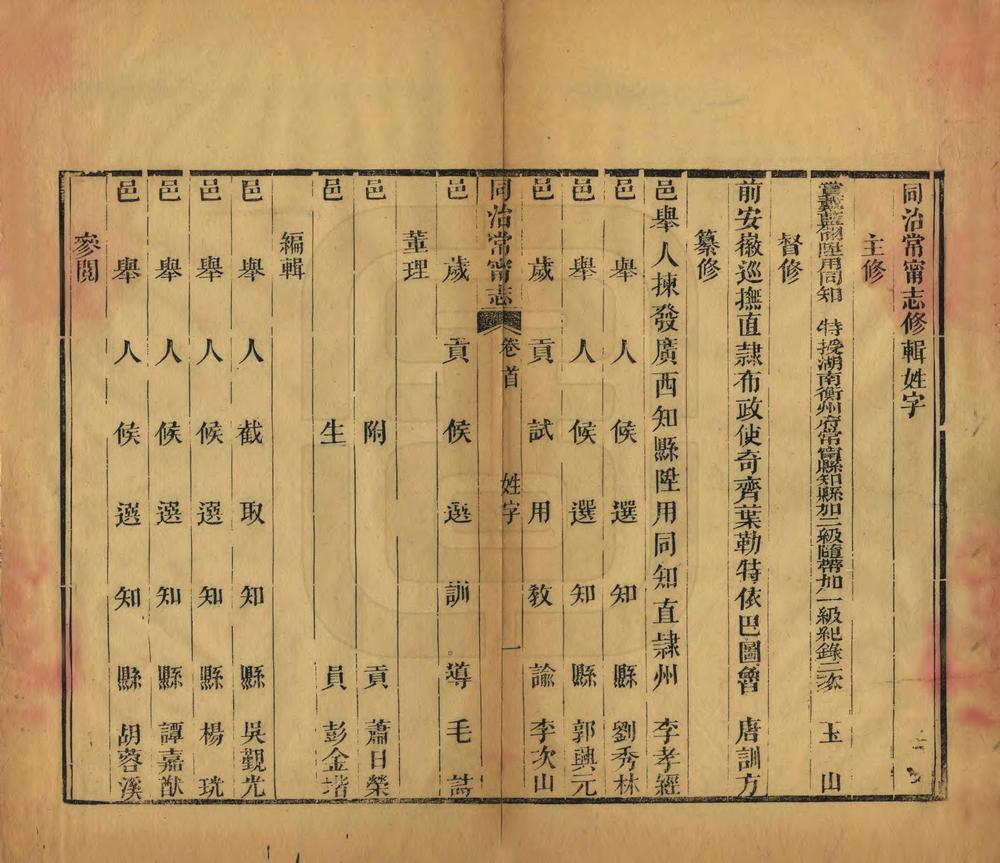 同治常甯志修輯姓字
主修
賞戴藍翎陞用同知 特授湖南衡州府常甯縣知縣加三級隨帶加一級紀錄二次 玉山
督修
前安徽巡撫直隷布政使奇齊葉勒特依巴圖魯 唐訓方
纂修
邑舉人揀發廣西知縣陞用同知直隷州 李孝經
邑舉人候選知縣 劉秀林
邑舉人候選知縣 郭興元
邑歲貢試用教諭 李次山
同治常甯志 卷首 姓字 一
邑歲貢候選訓導 毛詩
董理
邑附貢 蕭日榮
邑生員 彭金堦
編輯
邑舉人截取知縣 吳觀光
邑舉人候選知縣 楊珖
邑舉人候選知縣 譚嘉猷
邑舉人候選知縣 胡蓉溪
參閱